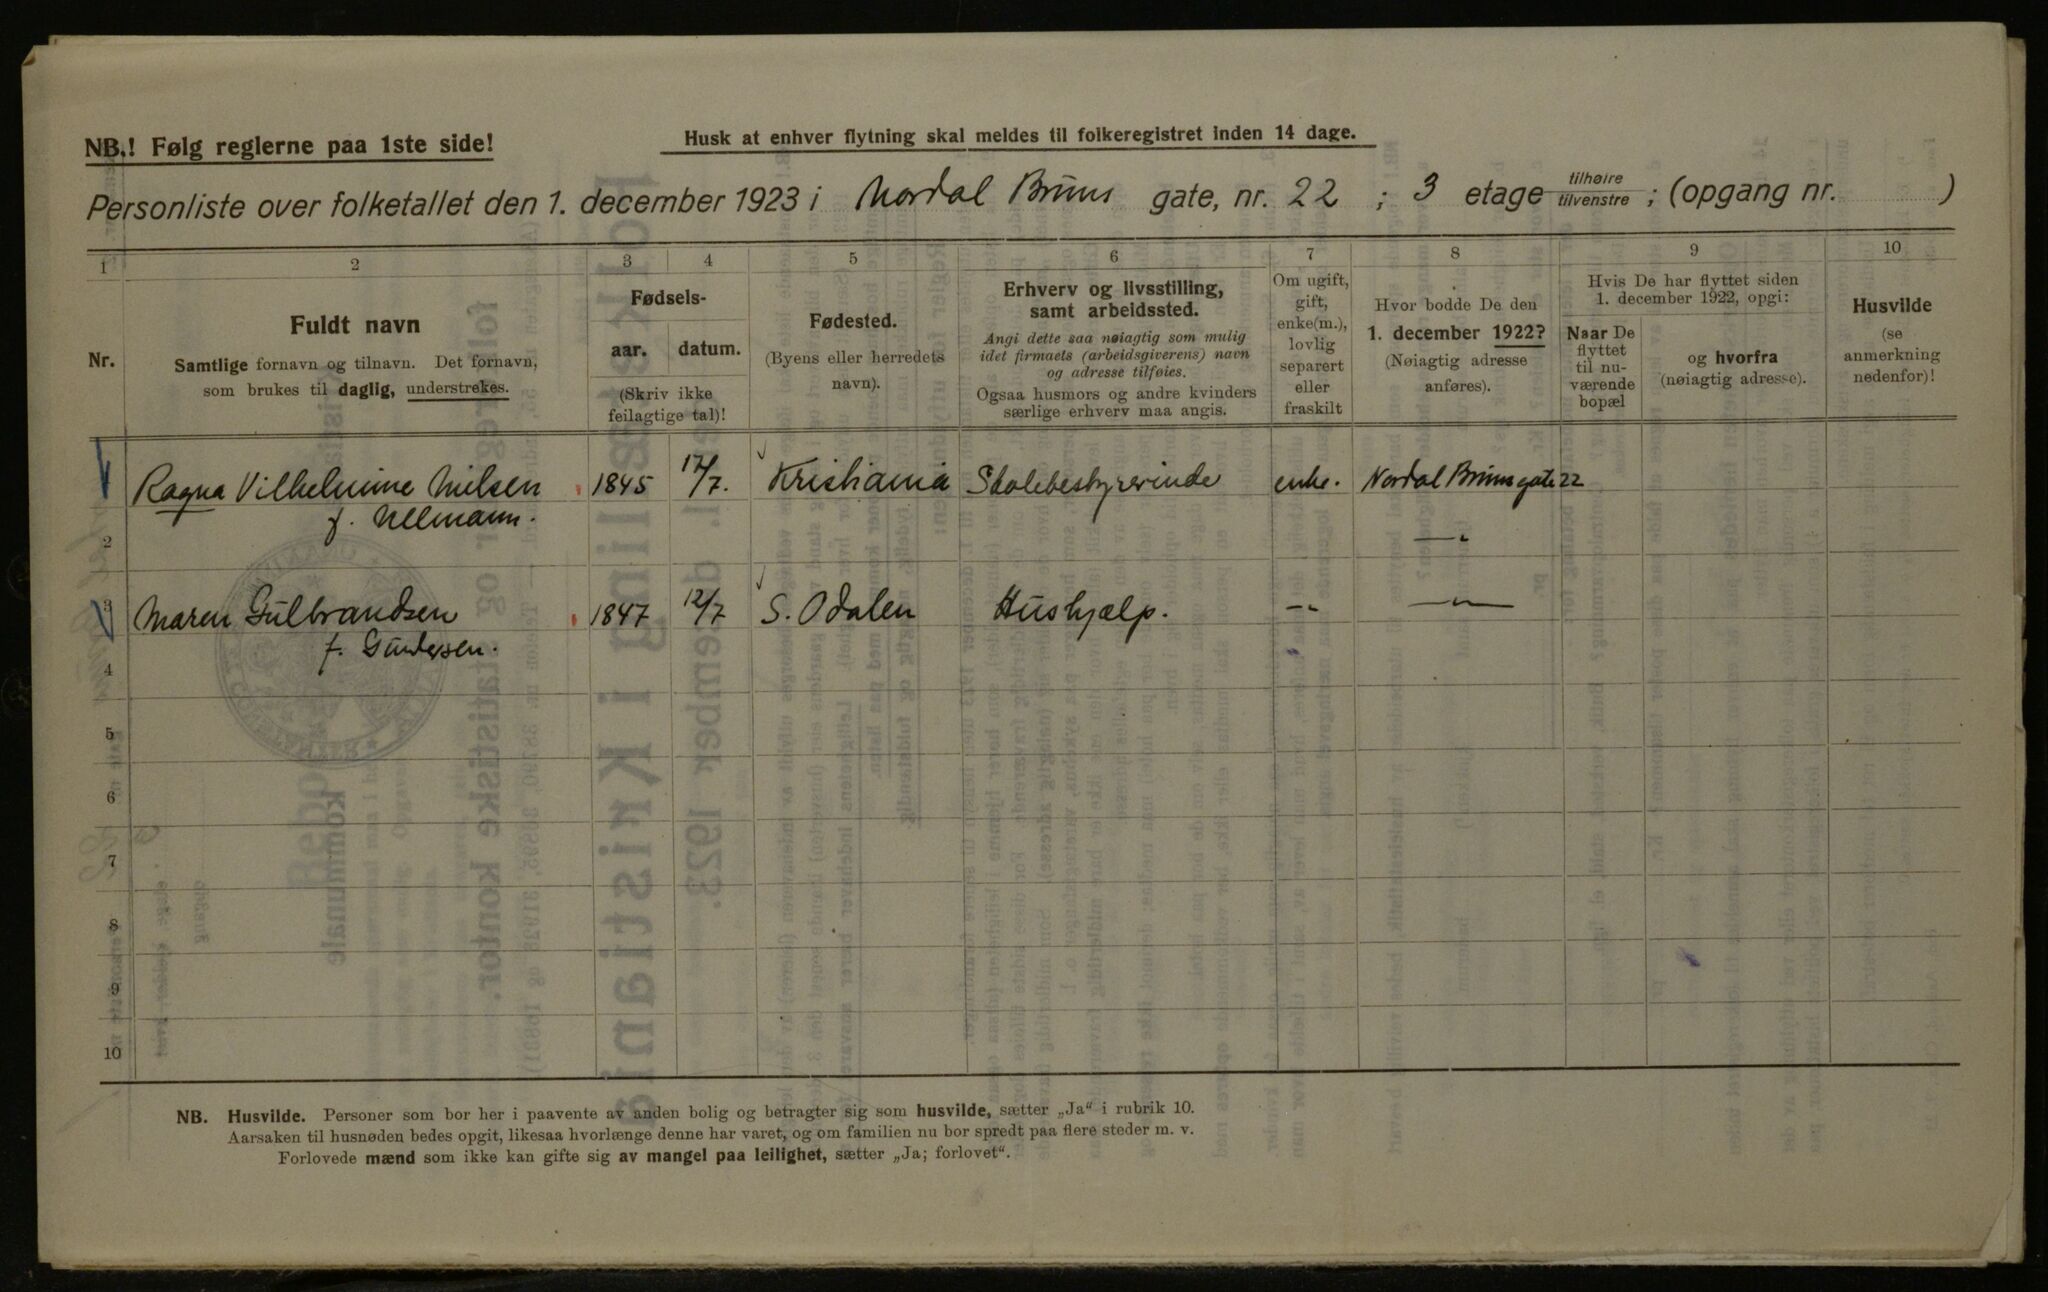 NB.! Følg reglerne paa 1ste side!
Husk at enhver flytning skal meldes til folkeregistret inden 14 dage.
Personliste over folketallet den 1. december 1923 i Nordal Bruns gate, nr. 22 ; 3 etage tilhøire/tilvenstre ; (opgang nr. )
1 2 3 4 5 6 7 8 9 10
Nr.
Fuldt navn
Samtlige fornavn og tilnavn. Det fornavn,
som brukes til daglig, understrekes.
Fødsels-
aar. datum.
(Skriv ikke
feilagtige tal)!
Fødested.
(Byens eller herredets
navn).
Erhverv og livsstilling,
samt arbeidssted.
Angi dette saa nøiagtig som mulig
idet firmaets (arbeidsgiverens) navn
og adresse tilføies.
Ogsaa husmors og andre kvinders
særlige erhverv maa angis.
Om ugift,
gift,
enke(m.),
lovlig
separert
eller
fraskilt
Hvor bodde De den
1. december 1922?
(Nøiagtig adresse
anføres).
Hvis De har flyttet siden
1. december 1922, opgi:
Naar De
flyttet
til nu-
værende
bopæl
og hvorfra
(nøiagtig adresse).
Husvilde
(se
anmerkning
nedenfor)!
Ragna Vilhelmine Nielsen 1845 17/7. Kristiania Skolebestyrerinde enke. Nordal Brunsgate 22
f. Ullmann.
2 —„—
3 Maren Gulbrandsen 1847 12/7 S. Odalen Hushjælp. —„— —„—
f. Gundersen.
4
5
6
7
8
9
10
NB. Husvilde. Personer som bor her i paavente av anden bolig og betragter sig som husvilde, sætter „Ja“ i rubrik 10.
Aarsaken til husnøden bedes opgit, likesaa hvorlænge denne har varet, og om familien nu bor spredt paa flere steder m. v.
Forlovede mænd som ikke kan gifte sig av mangel paa leilighet, sætter „Ja; forlovet“.